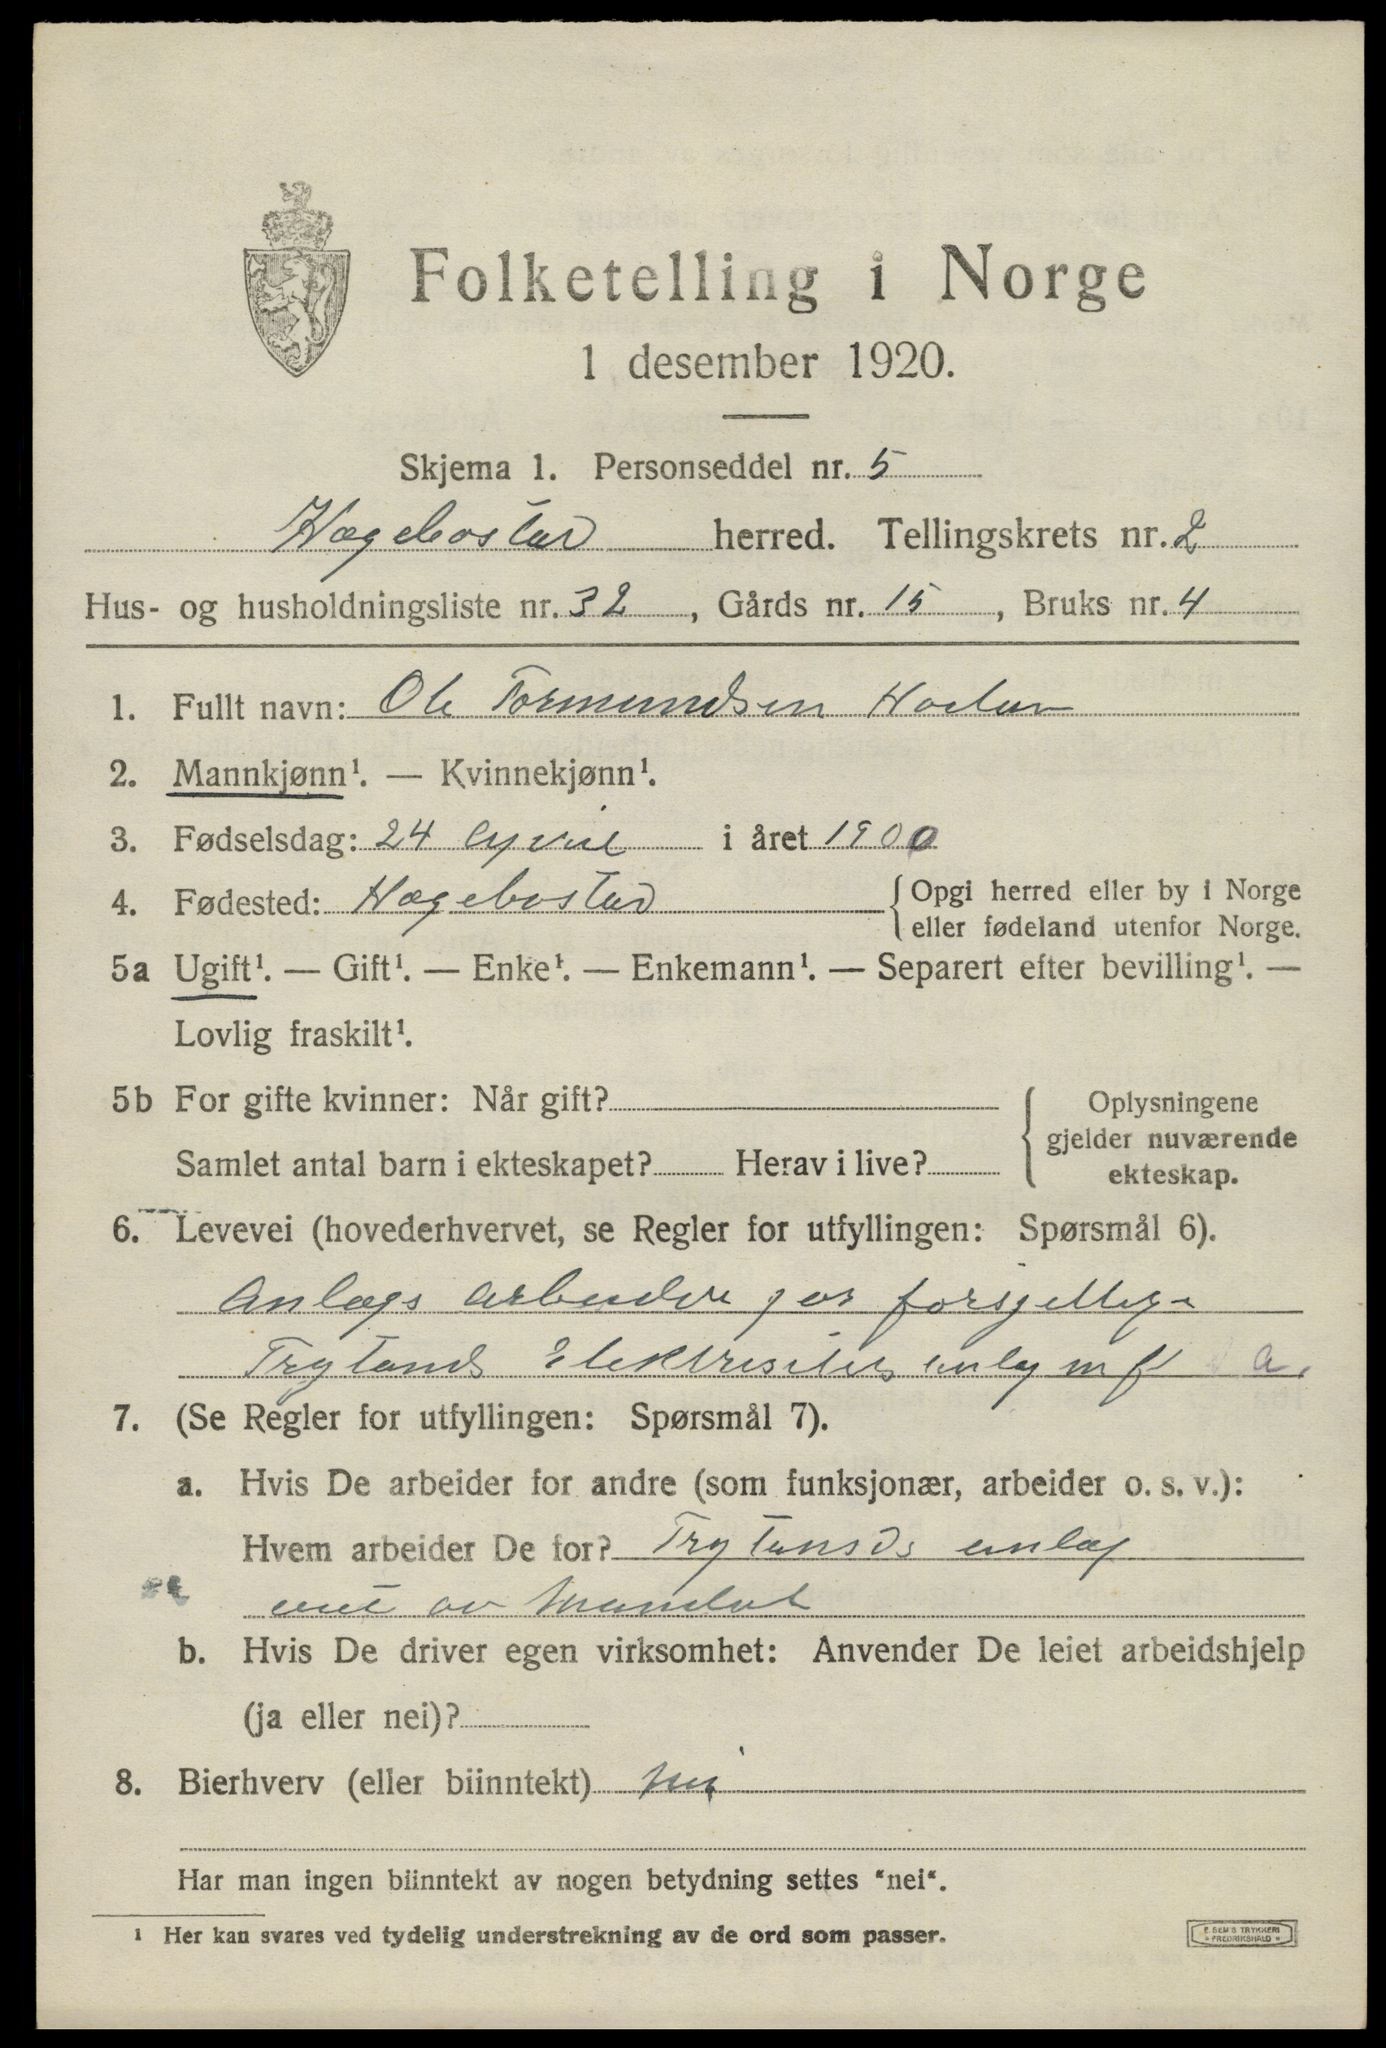 Folketelling i Norge
1 desember 1920.
Skjema 1. Personseddel nr. 5
Hægebostad herred. Tellingskrets nr. 2
Hus- og husholdningsliste nr. 32, Gårds nr. 15, Bruks nr. 4
1. Fullt navn: Ole Tormundsen
2. Mannkjønn¹. — Kvinnekjønn¹.
3. Fødselsdag: 24 april i året 1900
4. Fødested: Hægebostad { Opgi herred eller by i Norge
eller fødeland utenfor Norge.
5a Ugift¹. — Gift¹. — Enke¹. — Enkemann¹. — Separert efter bevilling¹. —
Lovlig fraskilt¹.
5b For gifte kvinner: Når gift?
Samlet antal barn i ekteskapet? Herav i live?
Oplysningene
gjelder nuværende
ekteskap.
6. Levevei (hovederhvervet, se Regler for utfyllingen: Spørsmål 6).
Anlægs arbeider
Trylands
7. (Se Regler for utfyllingen: Spørsmål 7).
a. Hvis De arbeider for andre (som funksjonær, arbeider o. s. v.):
Hvem arbeider De for? Trylands anlæg
b. Hvis De driver egen virksomhet: Anvender De leiet arbeidshjelp
(ja eller nei)?
8. Bierhverv (eller biinntekt) nei
Har man ingen biinntekt av nogen betydning settes "nei".
¹ Her kan svares ved tydelig understrekning av de ord som passer.
E. SEM'S TRYKKERI
FREDRIKSHALD